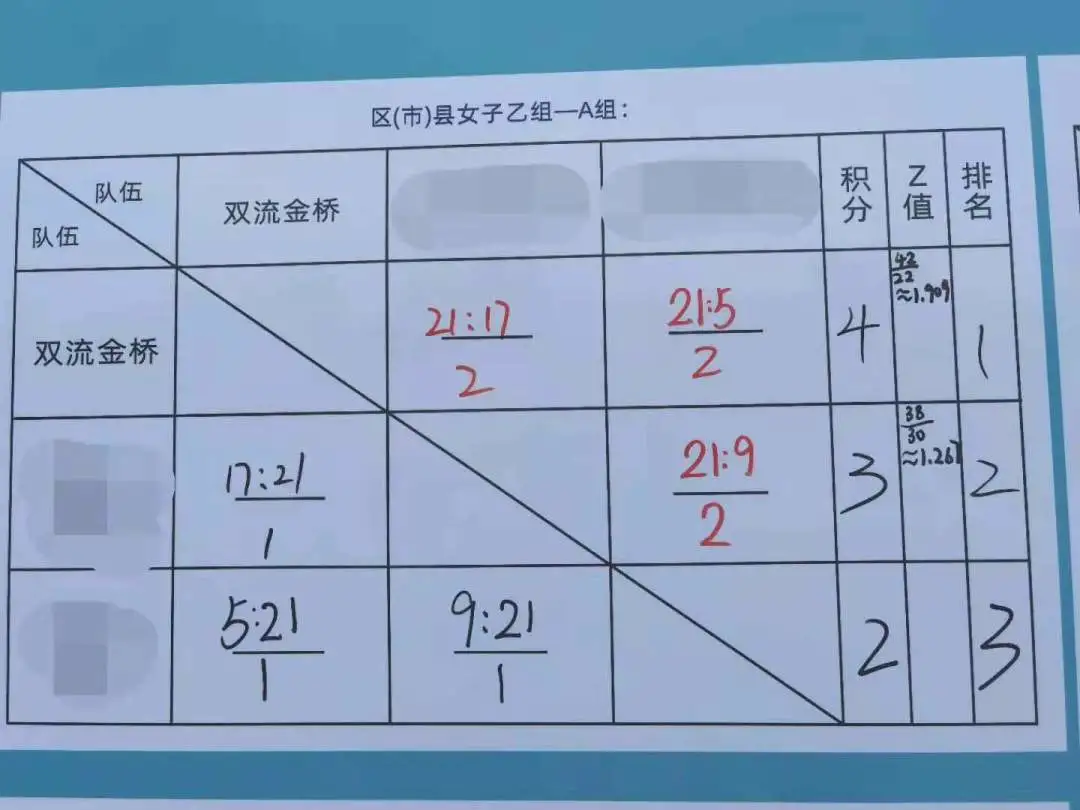 区(市)县女子乙组—A组:
队伍
队伍
双流金桥
积分
Z值
排名
双流金桥
21:17
2
21:5
2
4
42
22
≈1.909
1
17:21
1
21:9
2
3
38
30
≈1.267
2
5:21
1
9:21
1
2
3